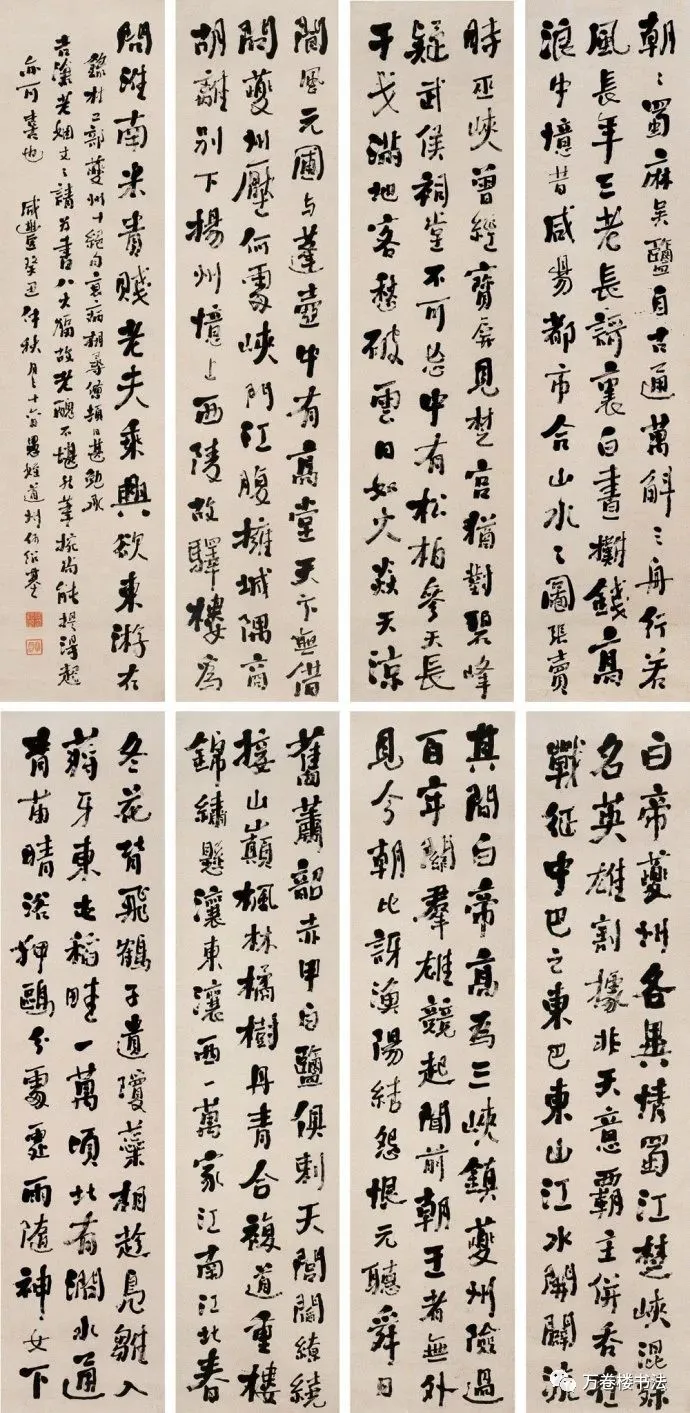 白帝夔州各異情蜀江楚峽混殊
名英雄割據非天意霸主併吞在
戰征中巴之東巴東山江水開闢流
其間白帝高為三峽鎮夔州險過
百牢關羣雄競起聞前朝王者無外
見今朝比訝漁陽結怨恨元聽舜日
舊蕭韶赤甲白鹽俱刺天閭閻繚繞
接山巔楓林橘樹丹青合複道重樓
錦繡懸瀼東瀼西一萬家江南江北春
冬花背飛鶴子遺瓊蘂相趁鳧雛入
蔣牙東屯稻畦一萬頃北有澗水通
青苗晴浴狎鷗分處處雨隨神女下
朝〻蜀麻吳鹽自古通萬斛之舟行若
風長年三老長謌裏白晝攤錢高
浪中憶昔咸陽都市合山水之圖張賣
時巫峽曾經寶屏見楚宮猶對碧峰
疑武侯祠堂不可忘中有松柏參天長
干戈滿地客愁破雲日如火炎天涼
閬風元圃與蓬壺中有高堂天下無借
問夔州壓何處峽門江腹擁城隅商
胡離別下揚州憶上西陵故驛樓為
問淮南米貴賤老夫乘興欲東游右
錄杜工部夔州十絕句衰病相尋頓日甚勉承
老姻丈之請為書八大幅故老醜不堪然筆捥尚能提得起
亦可喜也 咸豐癸丑仲秋月之十六日愚姪道州何紹基
万卷楼书法